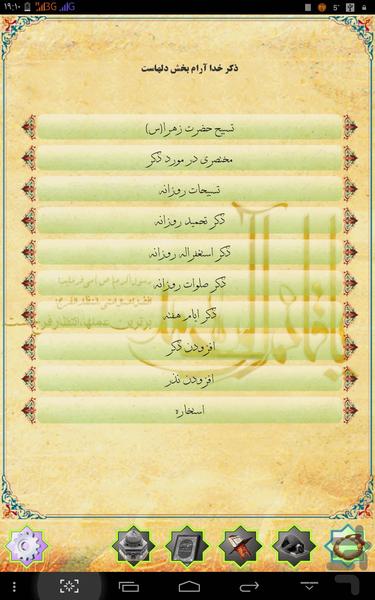 ۱۹:۱۰ 3G G 5°
ذکر خدا آرام بخش دلهاست
تسبیح حضرت زهرا(س)
مختصری در مورد ذکر
تسبیحات روزانه
ذکر تحمید روزانه
ذکر استغفراله روزانه
ذکر صلوات روزانه
ذکر ایام هفته
افزودن ذکر
افزودن نذر
استخاره